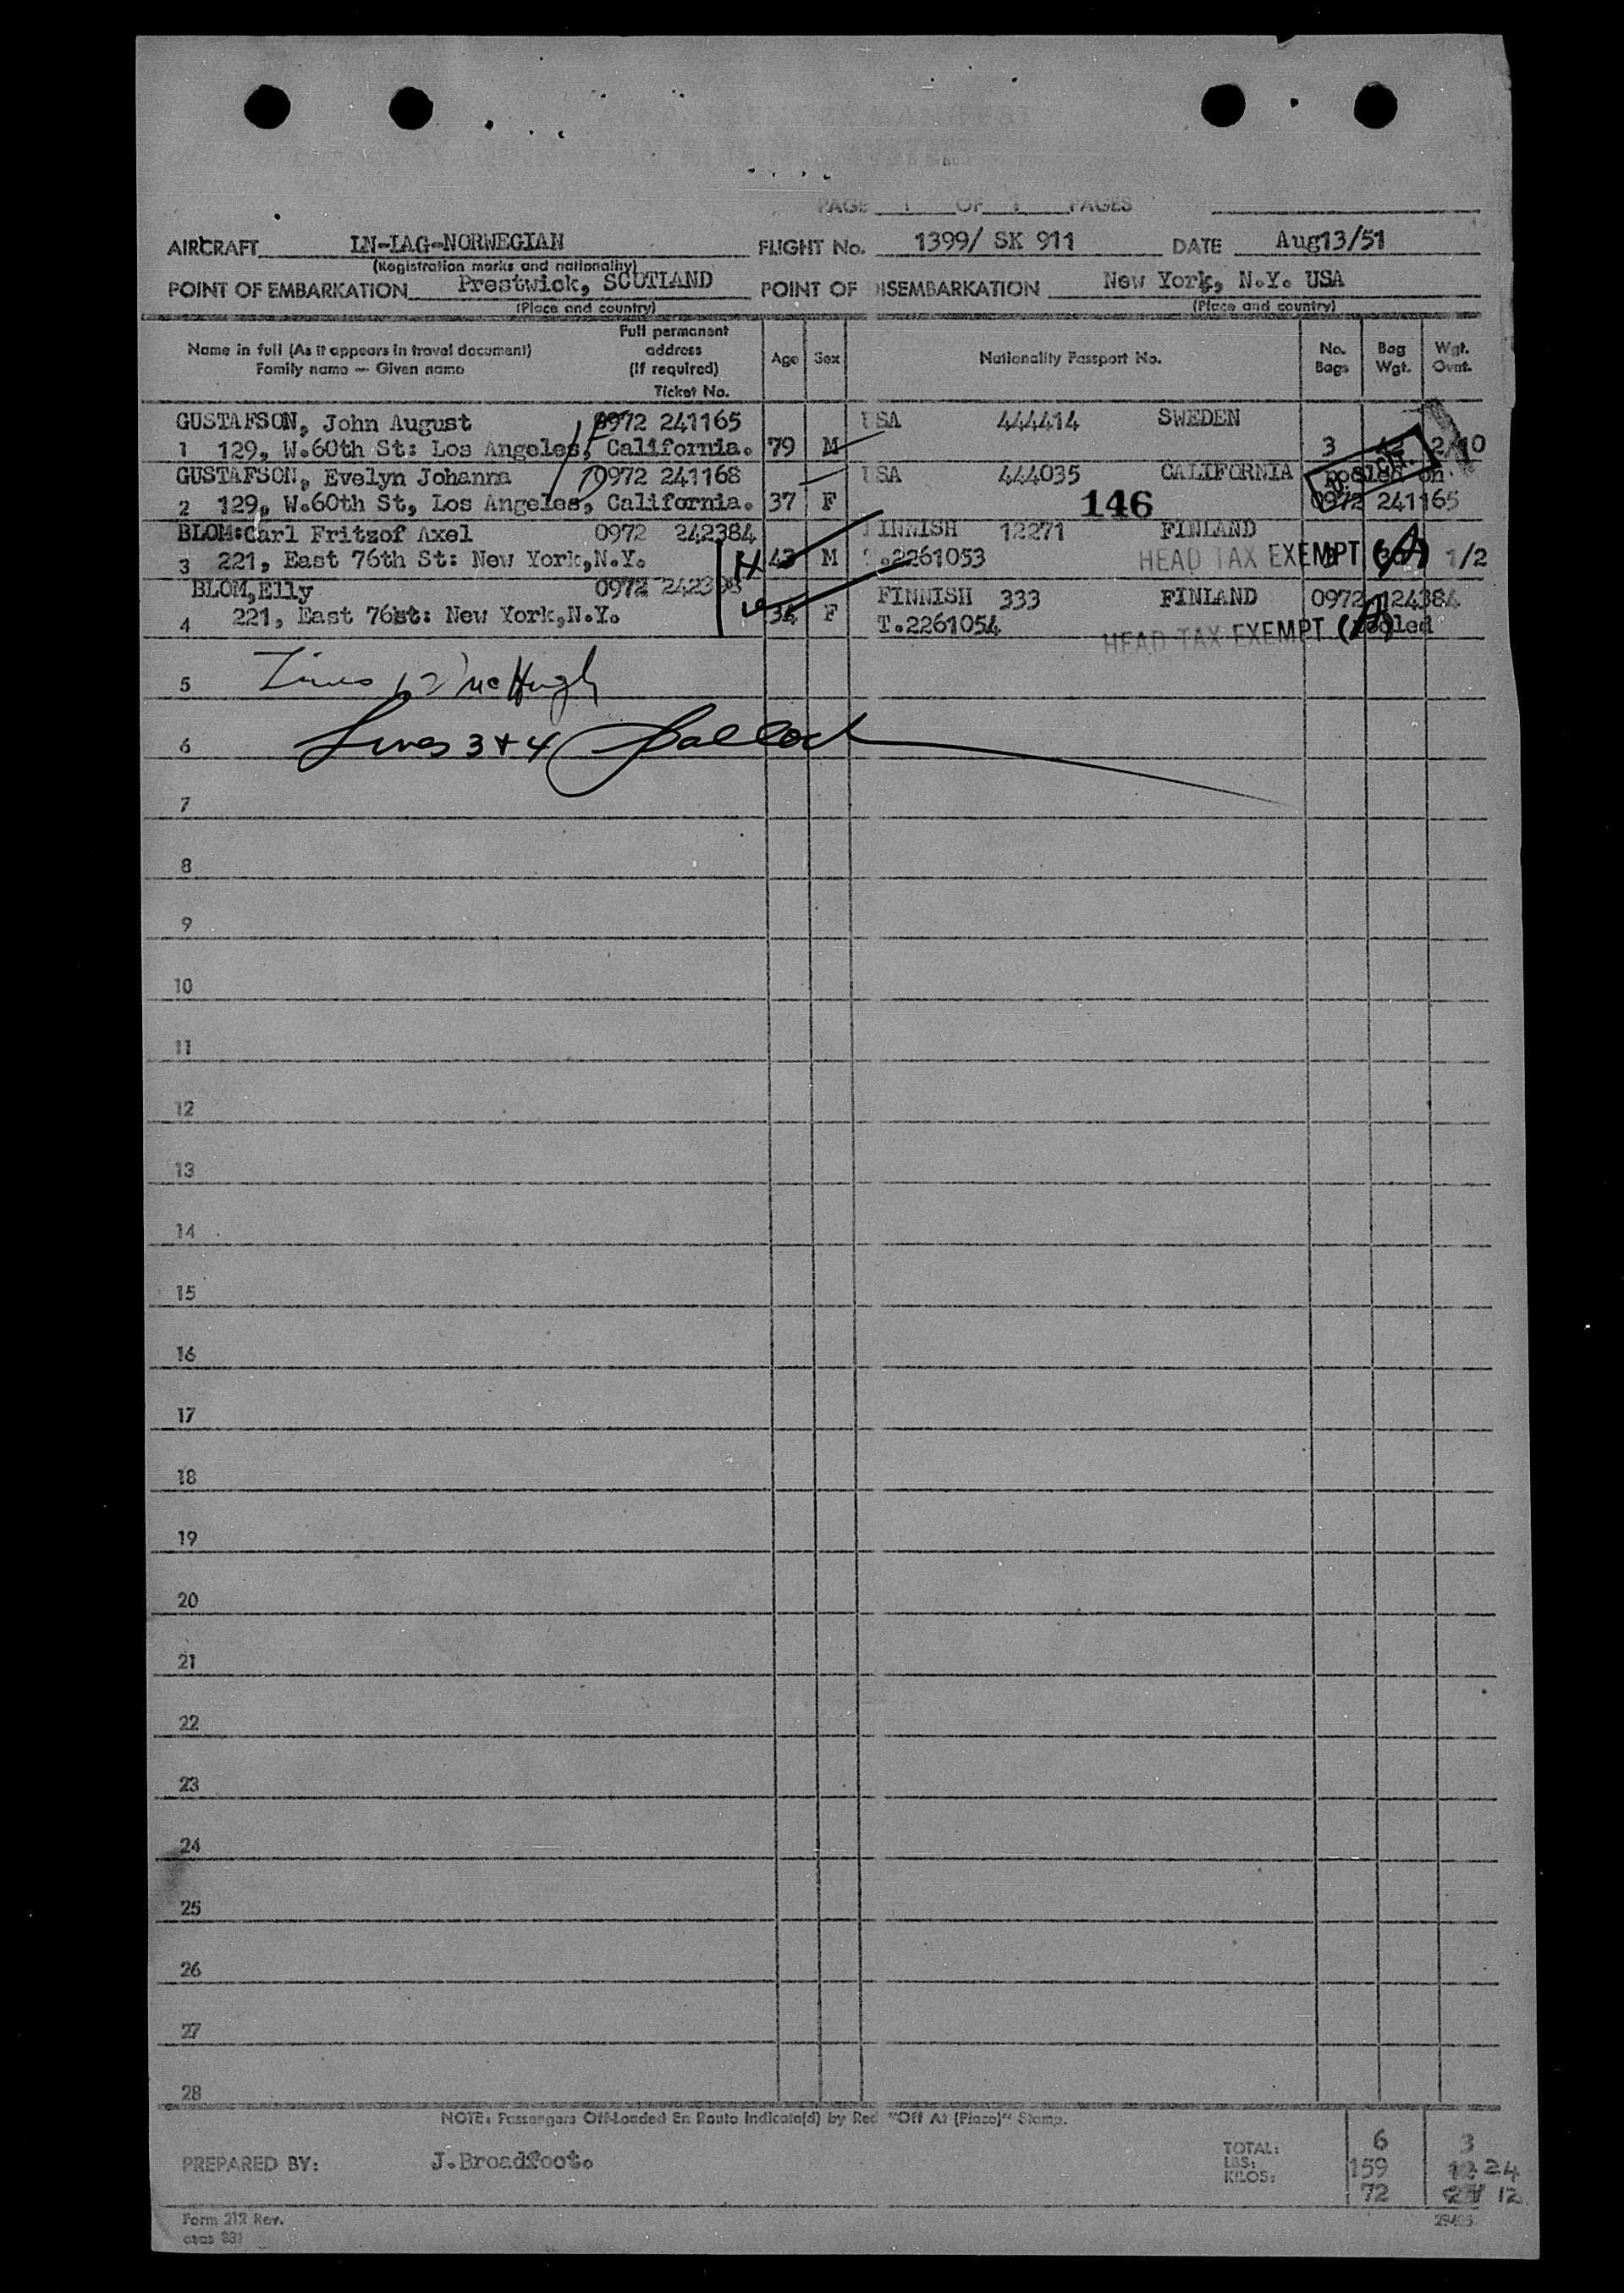 PAGE 1 OF 1 PAGES
AIRCRAFT LN-IAG-NORWEGIAN FLIGHT No. 1399/ SK 911 DATE Aug13/51
(Registration marks and nationality)
POINT OF EMBARKATION Prestwick, SCOTLAND POINT OF DISEMBARKATION New York, N.Y. USA
(Place and country) (Place and country)
Name in full (As it appears in travel document)
Family name — Given name
Full permanent
address
(If required)
Ticket No.
Age Sex Nationality Passport No. No. Bags Bag Wgt. Wgt. Ovnt.
GUSTAFSON, John August 0972 241165 USA 444414 SWEDEN
1 129, W.60th St: Los Angeles, California. 79 M 3 2/10
GUSTAFSON, Evelyn Johanna 0972 241168 USA 444035 CALIFORNIA pooled on
2 129, W.60th St, Los Angeles, California. 37 F 146 0972 241165
BLOM:Carl Fritzof Axel 0972 242384 FINNISH 12271 FINLAND
3 221, East 76th St: New York,N.Y. 43 M T.2261053 HEAD TAX EXEMPT (A) 1/2
BLOM,Elly 0972 FINNISH 333 FINLAND 0972 124384
4 221, East 76st: New York,N.Y. 34 F T.2261054 HEAD TAX EXEMPT (A) pooled
5 Lines 1,2 McHugh
6 Lines 3+4
7
8
9
10
11
12
13
14
15
16
17
18
19
20
21
22
23
24
25
26
27
28
NOTE: Passengers Off-Loaded En Route Indicate(d) by Red "Off At (Place)" Stamp.
PREPARED BY: J.Broadfoot.
TOTAL: 6 3
LBS: 159 24
KILOS: 72 12
Form 212 Rev.